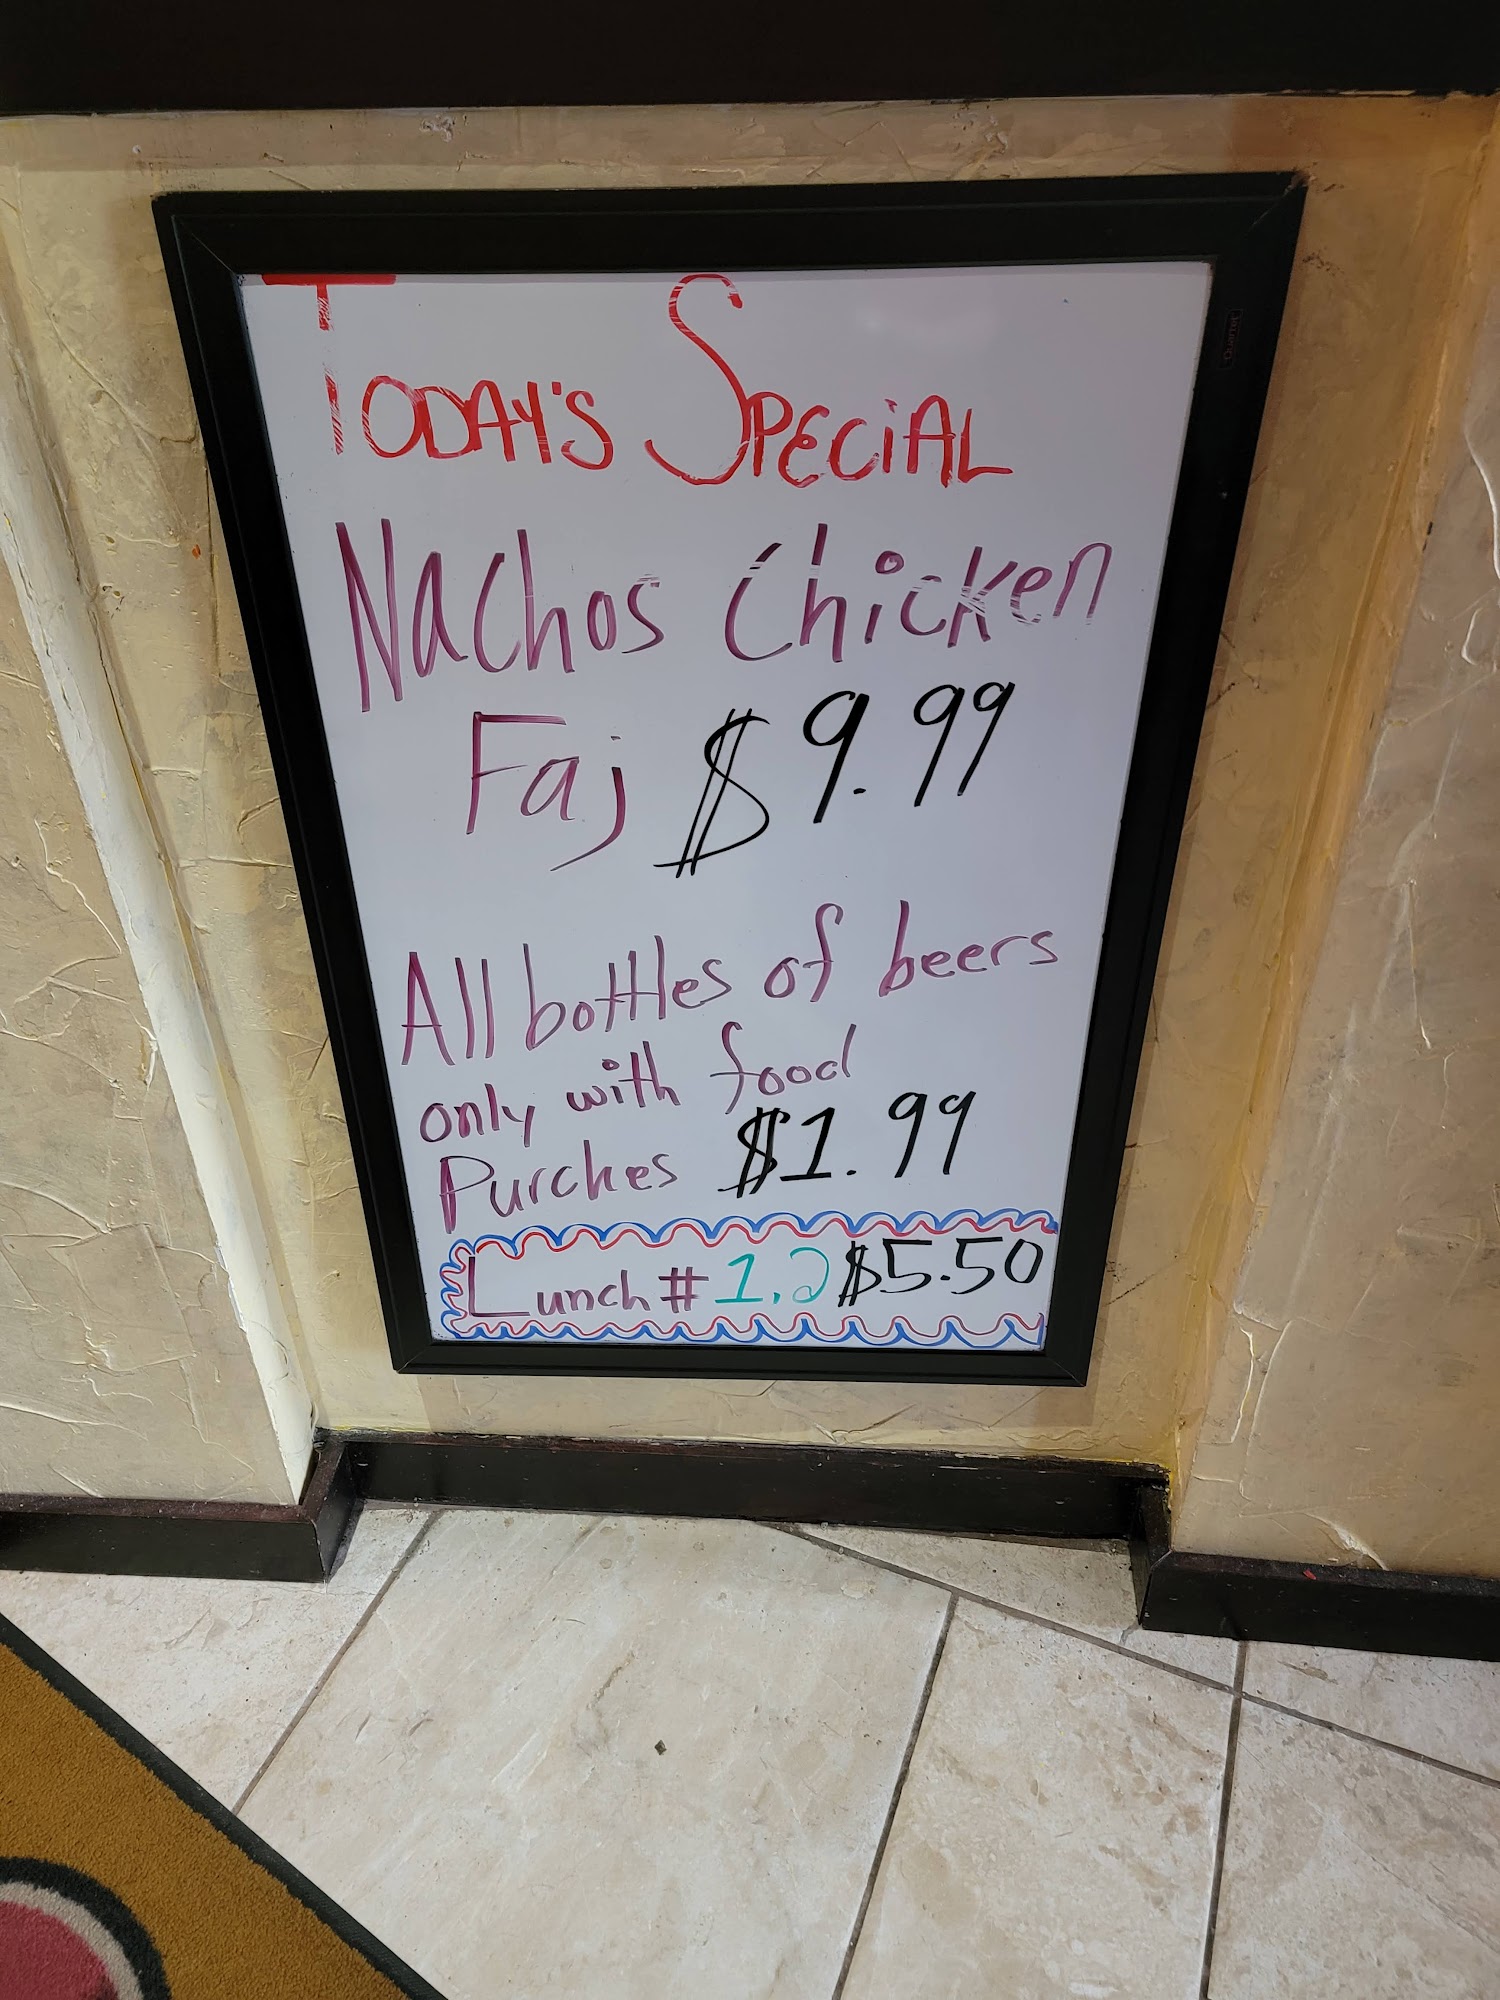 TODAY'S SPECIAL
Nachos Chicken
Faj $9.99
All bottles of beers
only with food
Purches $1.99
Lunch # 1,2 $5.50
Quartet